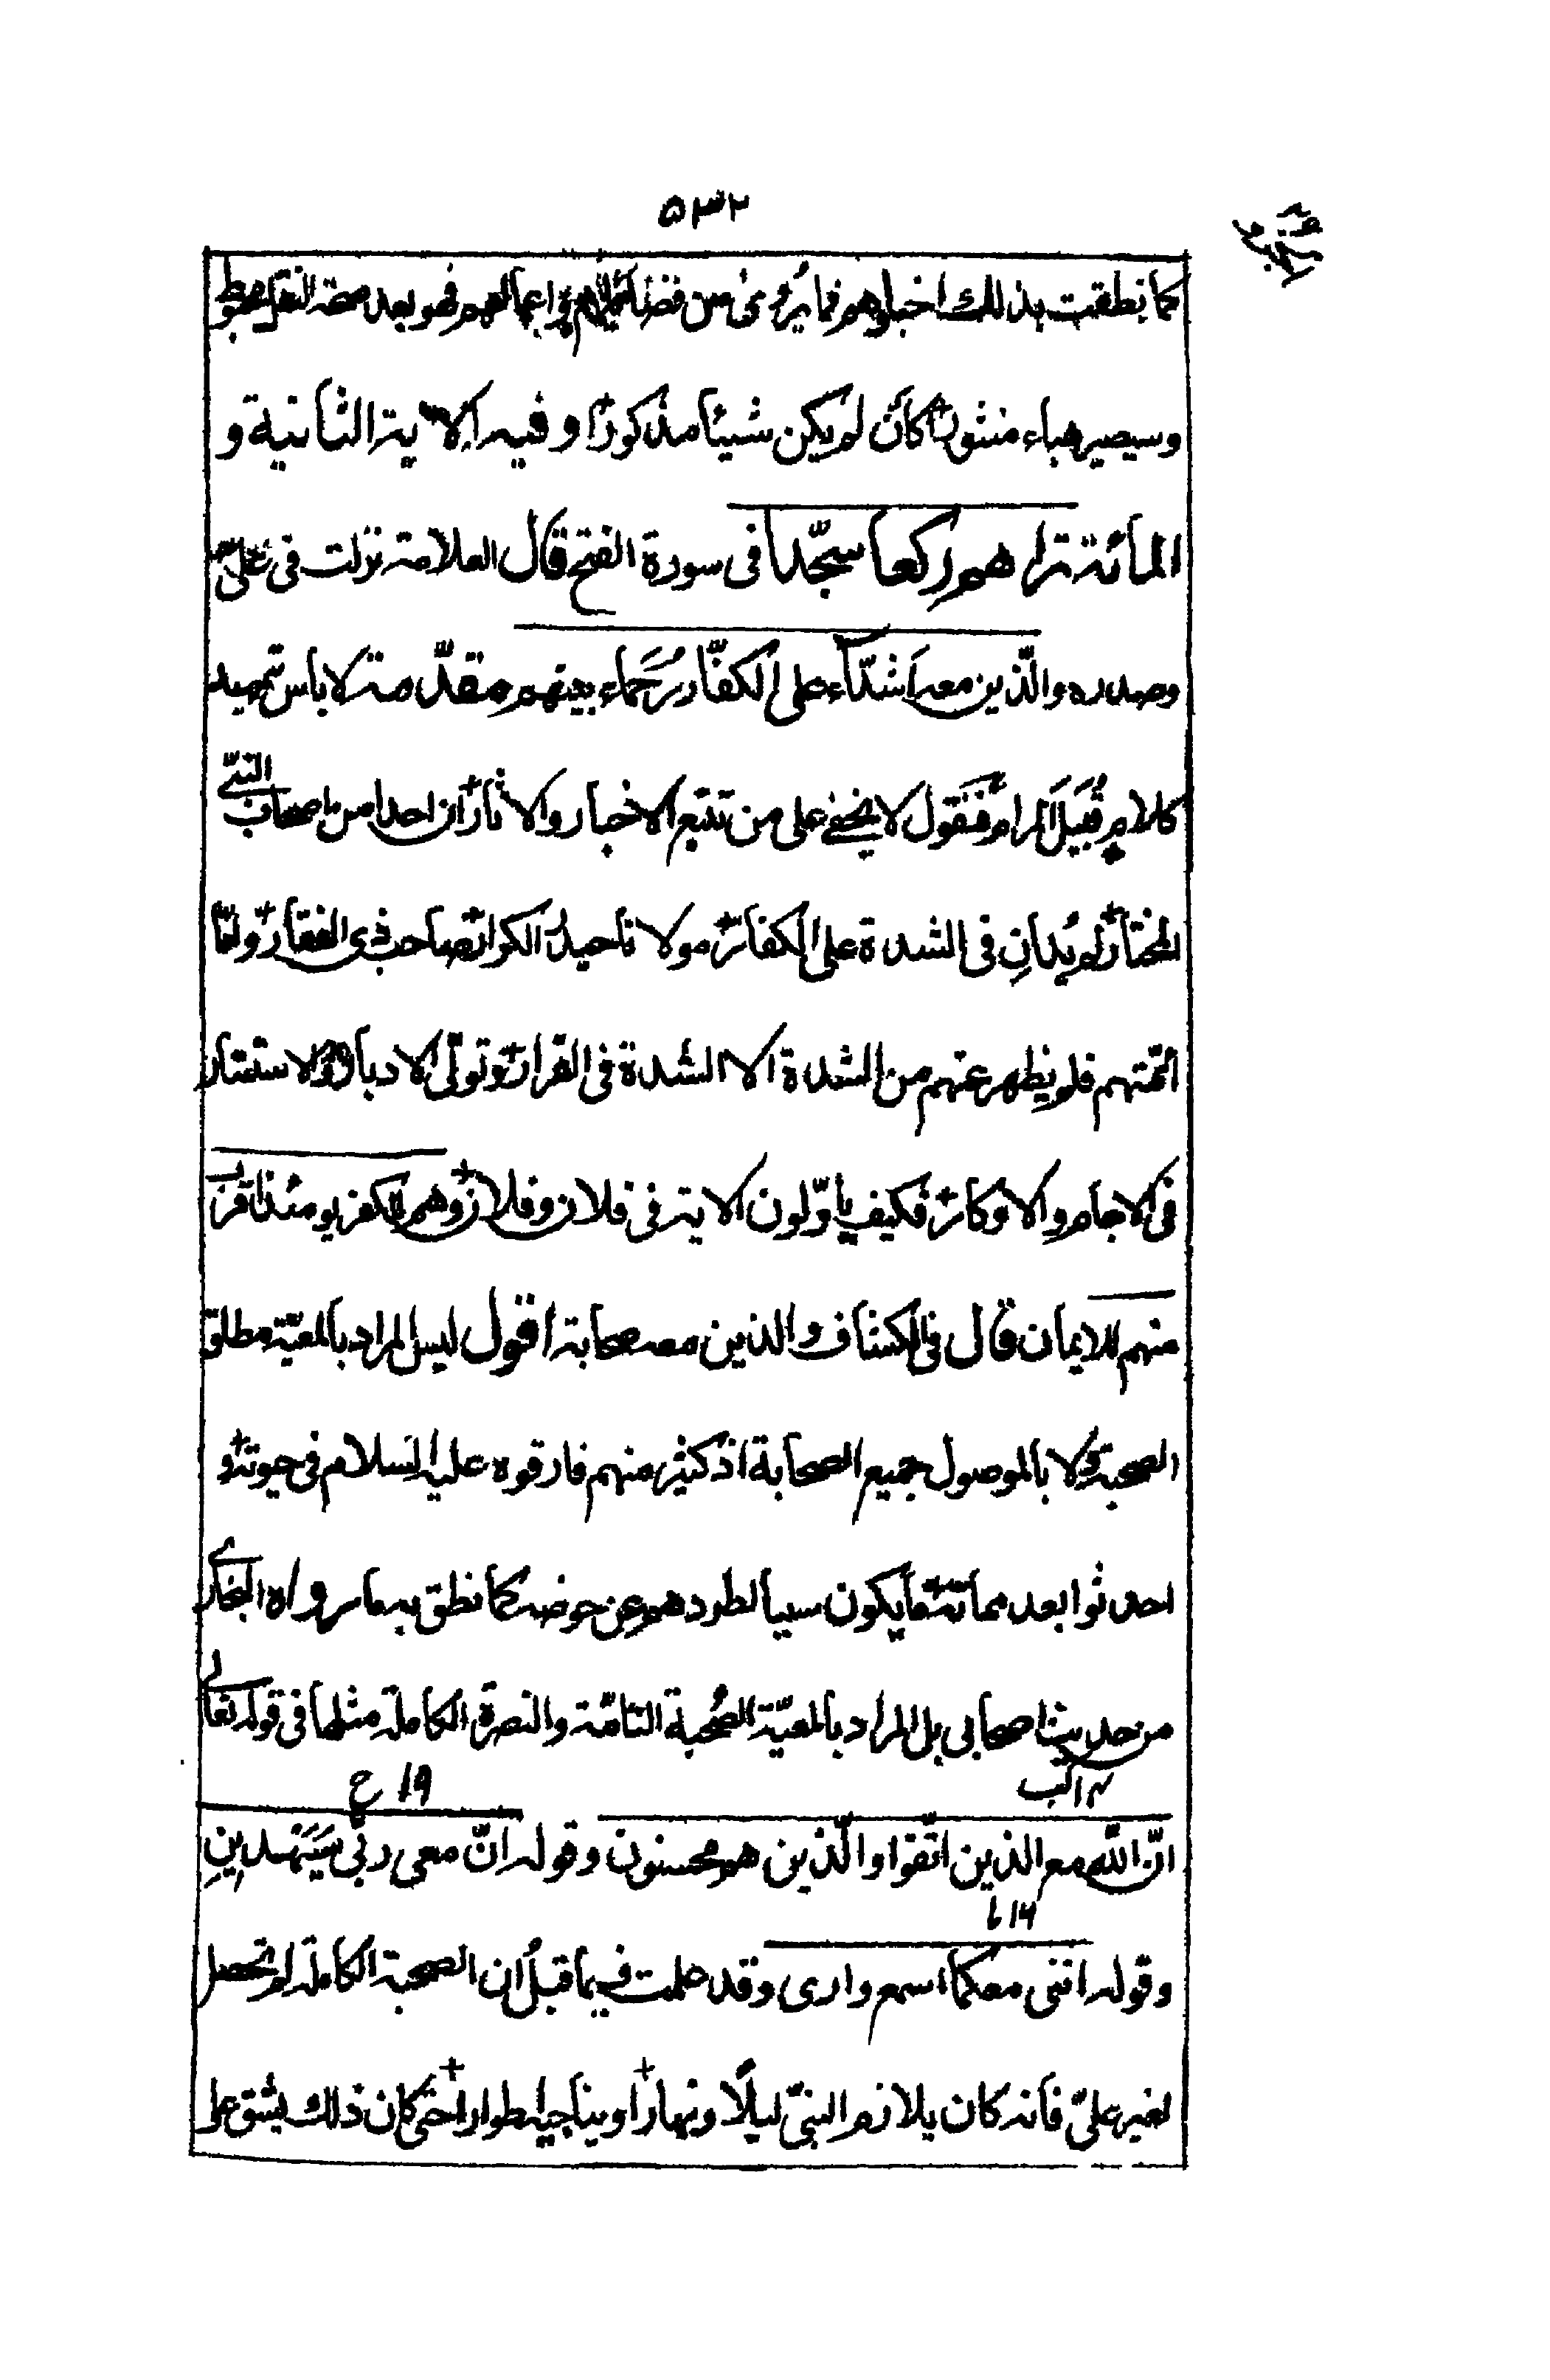 ۵۳۲
كما نطقت بذلك اخبارهم فما يُروىٰ من فضائلهم و اعمالهم فهو بعد صحة النقل هبوط
وسيصير هباء منثورا كأن لم يكن شيئا مذكورا و فيه الاية الثانية و
المائة تراهم ركعا سجّدا فى سورة الفتح قال العلامة نزلت فى علىّ
وصدره والّذين معه اشدّاء على الكفّار رُحَماء بينهم مقدّمة لا باس تمهيد
كلامٍ قُبَيلَ المرام فنقول لا يخفى على من تتبع الاخبار والاثار ان احدا من اصحاب النبىّ
المختار لم يُدانِ فى الشدة على الكفار مولانا حيدر الكرار صاحب ذى الفقار و امّا
ائمتهم فلم يظهر عنهم من الشدة الا الشدة فى الفرار و تولّى الادبار والاستتار
فى الاجام والاوكار فكيف ياوّلون الاية فى فلان و فلان وهم للكفر يومئذ اقرب
منهم للايمان قال فى الكشاف والذين معه صحابة اقول ليس المراد بالمعيّة مطلق
الصحبة ولا بالموصول جميع الصحابة اذ كثير منهم فارقوه عليه السلام فى حيوته و
احدثوا بعد مماته ما يكون سببا لطردهم عن حوضه كما نطق به ما رواه البخارى
من حديث اصحابى بل المراد بالمعيّة الصُحبة التامّة والنصرة الكاملة مثلها فى قوله تعالى
۱۹ ح
انّ الله مع الذين اتّقوا والّذين هم محسنون وقوله انّ معى ربّى سَيَهْدِينِ
۱۶ ط
وقوله اننى معكما اسمع وارى وقد علمت فيما قبلُ ان الصحبة الكاملة لم تحصل
لغير علىّ فانه كان يلازم النبىّ ليلًا ونهارا ويناجيه اطوارا حتى كان ذلك يشق على